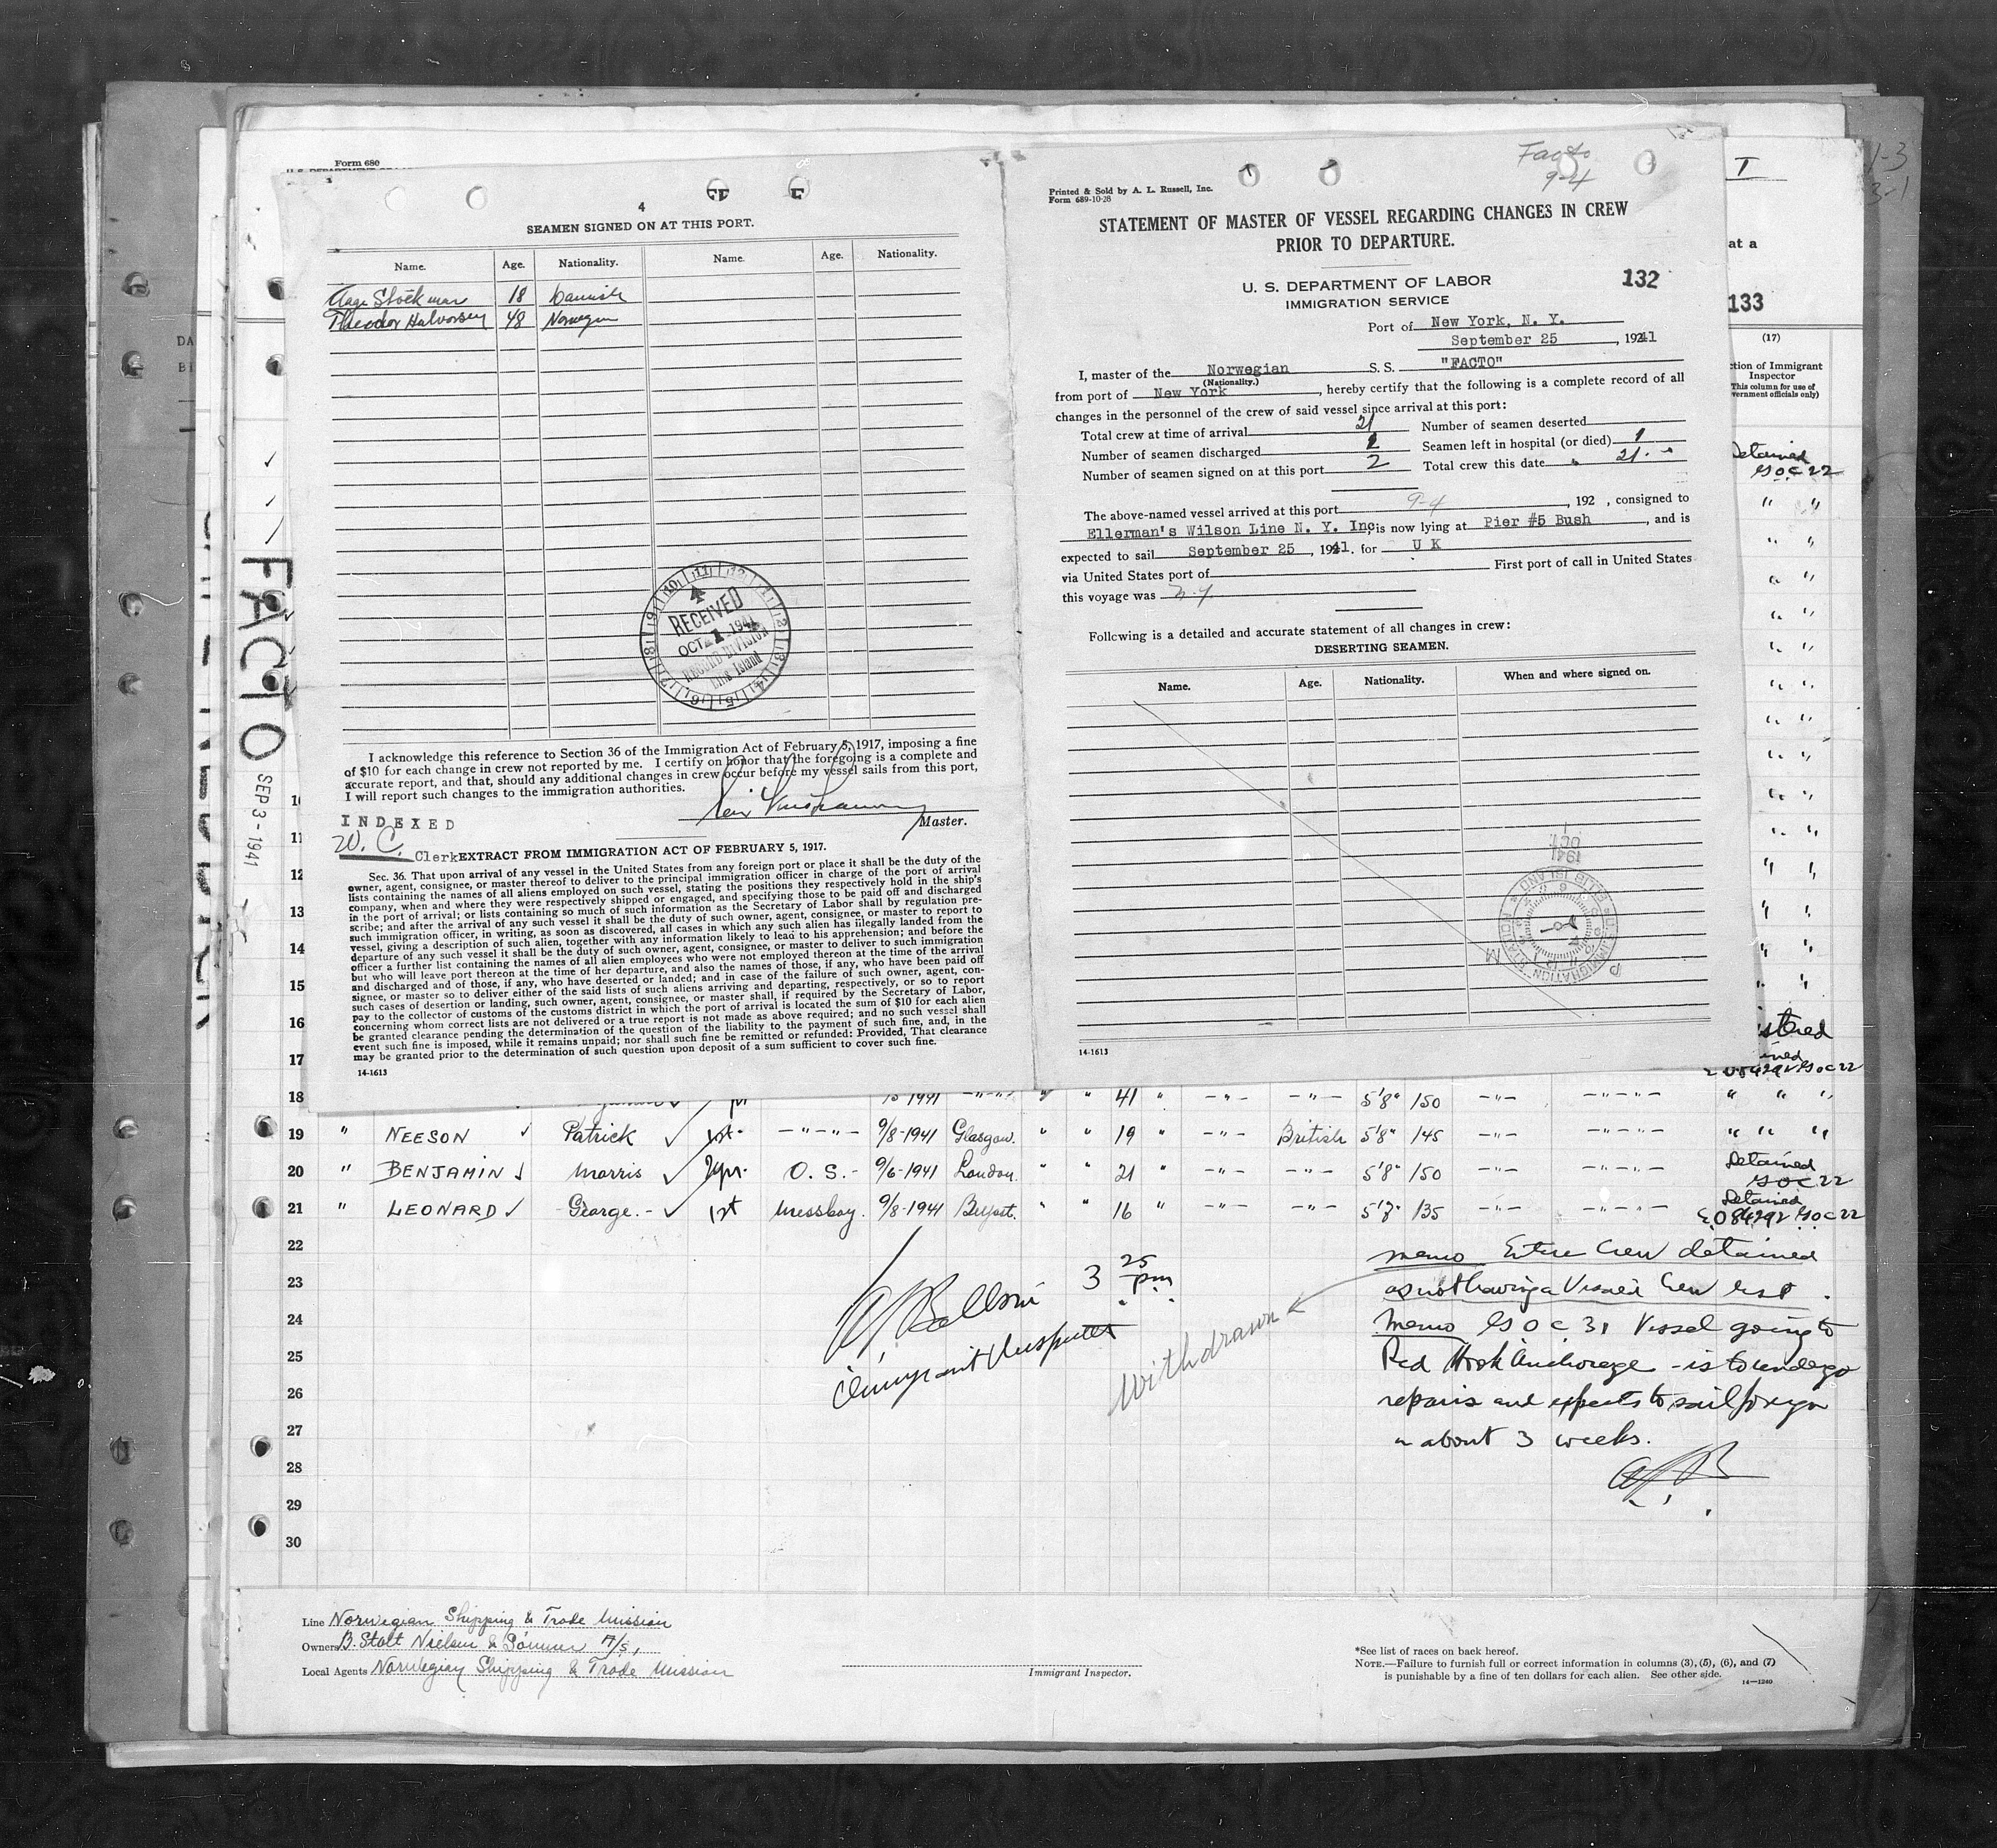 Form 680
4
SEAMEN SIGNED ON AT THIS PORT.
Name. Age. Nationality. Name. Age. Nationality.
Aage Stökman 18 Danish
Theodor Halvorsen 48 Norwegian
RECEIVED
OCT 1 1941
RECORD DIVISION
Ellis Island
I acknowledge this reference to Section 36 of the Immigration Act of February 5, 1917, imposing a fine
of $10 for each change in crew not reported by me. I certify on honor that the foregoing is a complete and
accurate report, and that, should any additional changes in crew occur before my vessel sails from this port,
I will report such changes to the immigration authorities.
Master.
INDEXED
W. C. Clerk
EXTRACT FROM IMMIGRATION ACT OF FEBRUARY 5, 1917.
Sec. 36. That upon arrival of any vessel in the United States from any foreign port or place it shall be the duty of the
owner, agent, consignee, or master thereof to deliver to the principal immigration officer in charge of the port of arrival
lists containing the names of all aliens employed on such vessel, stating the positions they respectively hold in the ship's
company, when and where they were respectively shipped or engaged, and specifying those to be paid off and discharged
in the port of arrival; or lists containing so much of such information as the Secretary of Labor shall by regulation pre-
scribe; and after the arrival of any such vessel it shall be the duty of such owner, agent, consignee, or master to report to
such immigration officer, in writing, as soon as discovered, all cases in which any such alien has illegally landed from the
vessel, giving a description of such alien, together with any information likely to lead to his apprehension; and before the
departure of any such vessel it shall be the duty of such owner, agent, consignee, or master to deliver to such immigration
officer a further list containing the names of all alien employees who were not employed thereon at the time of the arrival
but who will leave port thereon at the time of her departure, and also the names of those, if any, who have been paid off
and discharged and of those, if any, who have deserted or landed; and in case of the failure of such owner, agent, con-
signee, or master so to deliver either of the said lists of such aliens arriving and departing, respectively, or so to report
such cases of desertion or landing, such owner, agent, consignee, or master shall, if required by the Secretary of Labor,
pay to the collector of customs of the customs district in which the port of arrival is located the sum of $10 for each alien
concerning whom correct lists are not delivered or a true report is not made as above required; and no such vessel shall
be granted clearance pending the determination of the question of the liability to the payment of such fine, and, in the
event such fine is imposed, while it remains unpaid; nor shall such fine be remitted or refunded: Provided, That clearance
may be granted prior to the determination of such question upon deposit of a sum sufficient to cover such fine.
14-1613
Facto
9-4
Printed & Sold by A. L. Russell, Inc.
Form 689-10-28
STATEMENT OF MASTER OF VESSEL REGARDING CHANGES IN CREW
PRIOR TO DEPARTURE.
U. S. DEPARTMENT OF LABOR
IMMIGRATION SERVICE
132
Port of New York, N. Y.
September 25, 1941
I, master of the Norwegian S. S. "FACTO"
(Nationality.)
from port of New York, hereby certify that the following is a complete record of all
changes in the personnel of the crew of said vessel since arrival at this port:
Total crew at time of arrival 21 Number of seamen deserted
Number of seamen discharged 1 Seamen left in hospital (or died) 1
Number of seamen signed on at this port 2 Total crew this date 21.
The above-named vessel arrived at this port 9-4, 192 , consigned to
Ellerman's Wilson Line N. Y. Inc, is now lying at Pier #5 Bush, and is
expected to sail September 25, 1941. for U K
via United States port of First port of call in United States
this voyage was N.Y.
Following is a detailed and accurate statement of all changes in crew:
DESERTING SEAMEN.
Name. Age. Nationality. When and where signed on.
1941
OCT 1
IMMIGRATION STATION
ELLIS ISLAND
14-1613
FACTO
SEP 3 - 1941
1-3
3-1
at a
133
(17)
ction of Immigrant
Inspector
This column for use of
vernment officials only)
Detained
GOC 22
10
11
12
13
14
15
16
17
18 41 " 5'8" 150 " " "
19 " NEESON Patrick 1st 9/8-1941 Glasgow. " " 19 " British 5'8" 145 " " "
20 " BENJAMIN Morris O. S. 9/6-1941 London. " " 21 " 5'8" 150 Detained GOC 22
21 " LEONARD George. 1st Messboy. 9/8-1941 Belfast. " " 16 " 5'7" 135 Detained GOC 22
22
23
24
25
26
27
28
29
30
3 25 pm
Immigrant Inspector
Withdrawn
Memo Entire Crew detained
as not having a Visaed Crew list.
Memo GOC 31 Vessel going to
Red Hook Anchorage - is to undergo
repairs and expects to sail foreign
in about 3 weeks.
AJB
Line Norwegian Shipping & Trade Mission
Owners B. Stolt Nielsen & Sönner A/S,
Local Agents Norwegian Shipping & Trade Mission
Immigrant Inspector.
*See list of races on back hereof.
NOTE.—Failure to furnish full or correct information in columns (3), (5), (6), and (7)
is punishable by a fine of ten dollars for each alien. See other side.
14—1240